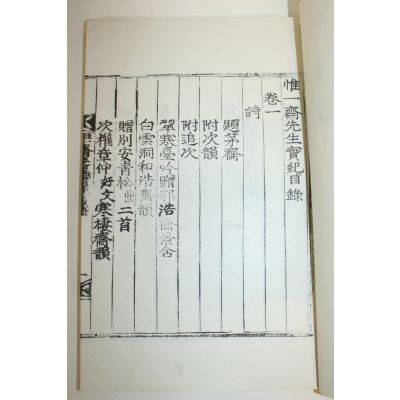 惟一齋先生實紀目錄
卷一
詩
題茅齋
附次韻
附追次
翠寒臺吟贈郭浩
白雲洞和浩齋韻
贈別安靑松 二首
次權章仲好文寒棲齋韻